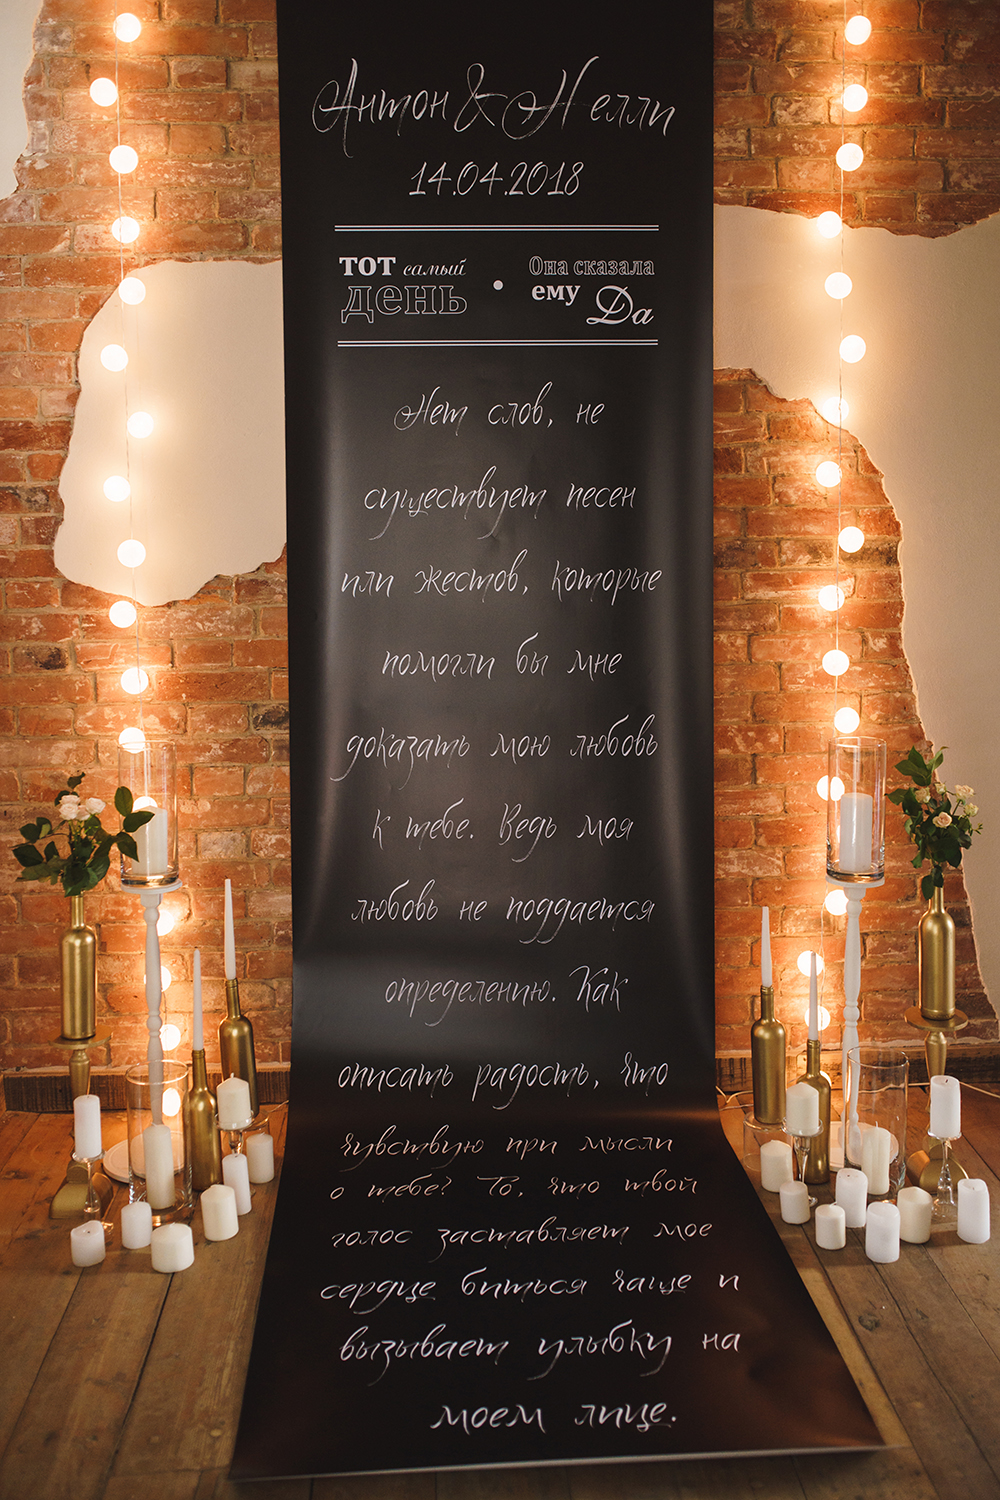 Антон & Нелли
14.04.2018
тот самый
день
•
Она сказала
ему Да
Нет слов, не
существует песен
или жестов, которые
помогли бы мне
доказать мою любовь
к тебе. Ведь моя
любовь не поддается
определению. Как
описать радость, что
чувствую при мысли
о тебе? То, что твой
голос заставляет мое
сердце биться чаще и
вызывает улыбку на
моем лице.